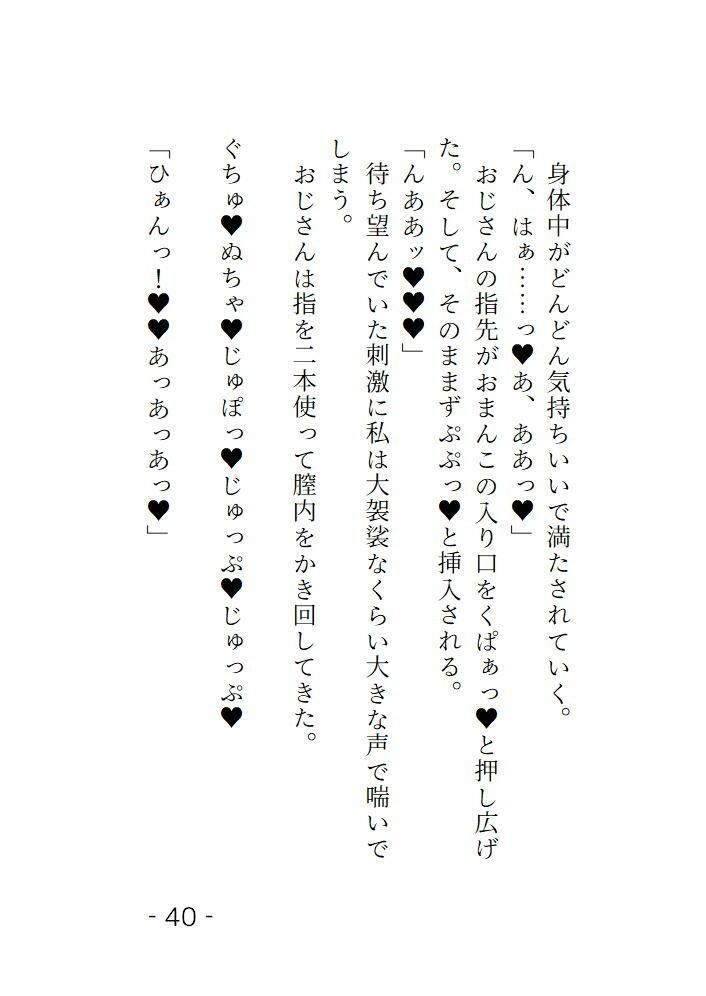 身体中がどんどん気持ちいいで満たされていく。
「ん、はぁ……っ♥あ、ああっ♥」
おじさんの指先がおまんこの入り口をくぱぁっ♥と押し広げ
た。そして、そのままずぷぷっ♥と挿入される。
「んああッ♥♥♥」
待ち望んでいた刺激に私は大袈裟なくらい大きな声で喘いで
しまう。
おじさんは指を二本使って膣内をかき回してきた。
ぐちゅ♥ぬちゃ♥じゅぽっ♥じゅっぷ♥じゅっぷ♥
「ひぁんっ！♥♥あっあっあっ♥」
- 40 -